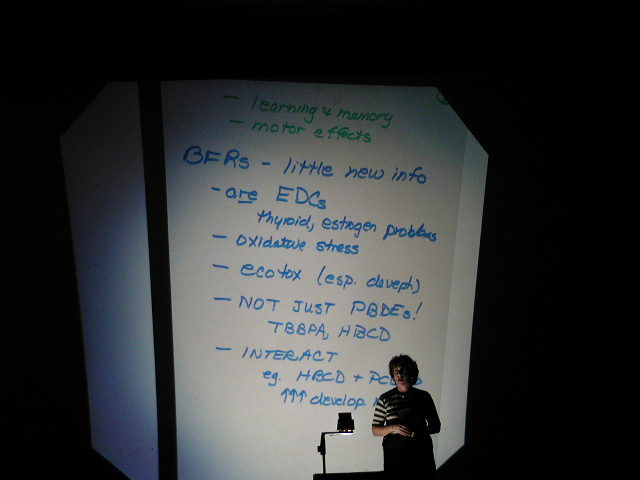 — learning & memory
— motor effects
BFRs - little new info
- are EDCs
thyroid, estrogen problems
— oxidative stress
— ecotox (esp. devept.)
— NOT JUST PBDEs!
TBBPA, HBCD
— INTERACT
eg. HBCD +
↑↑↑ develop.